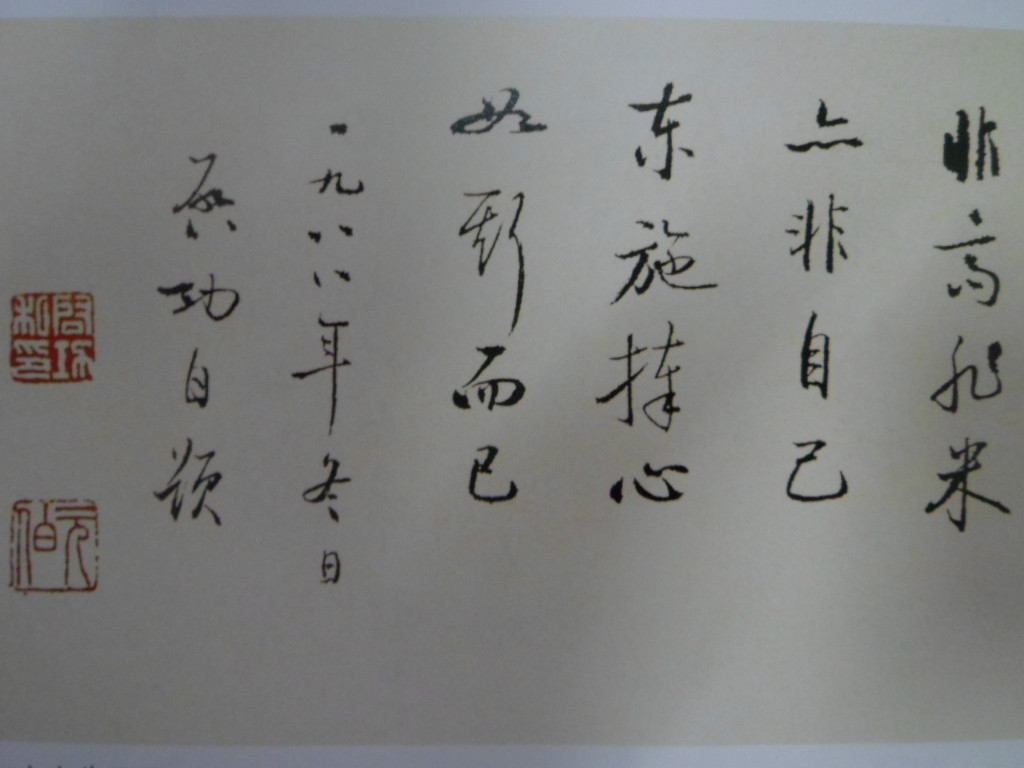 非高非米
亦非自己
东施捧心
如斯而已
一九八八年冬日
启功自题
启功私印
元伯